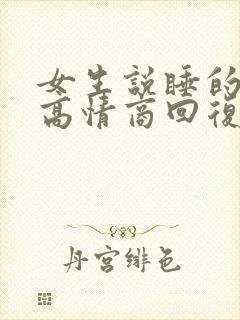 女生説睡的
高情商回復
丹宮緋色